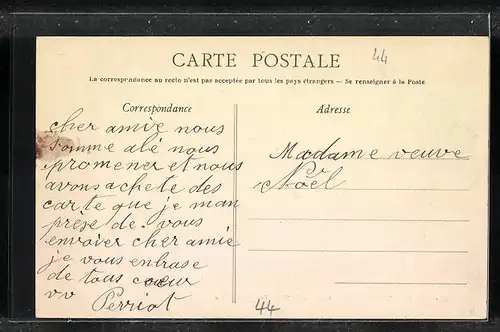 CARTE POSTALE
44
La correspondance au recto n'est pas acceptée par tous les pays étrangers — Se renseigner à la Poste
Correspondance
cher amive nous
somme alé nous
promener et nous
avons achete des
carte que je man
prése de vous
envoier cher amie
je vous enbrase
de tous coeur
vv Perriot
Adresse
Madame veuve
Noël
44